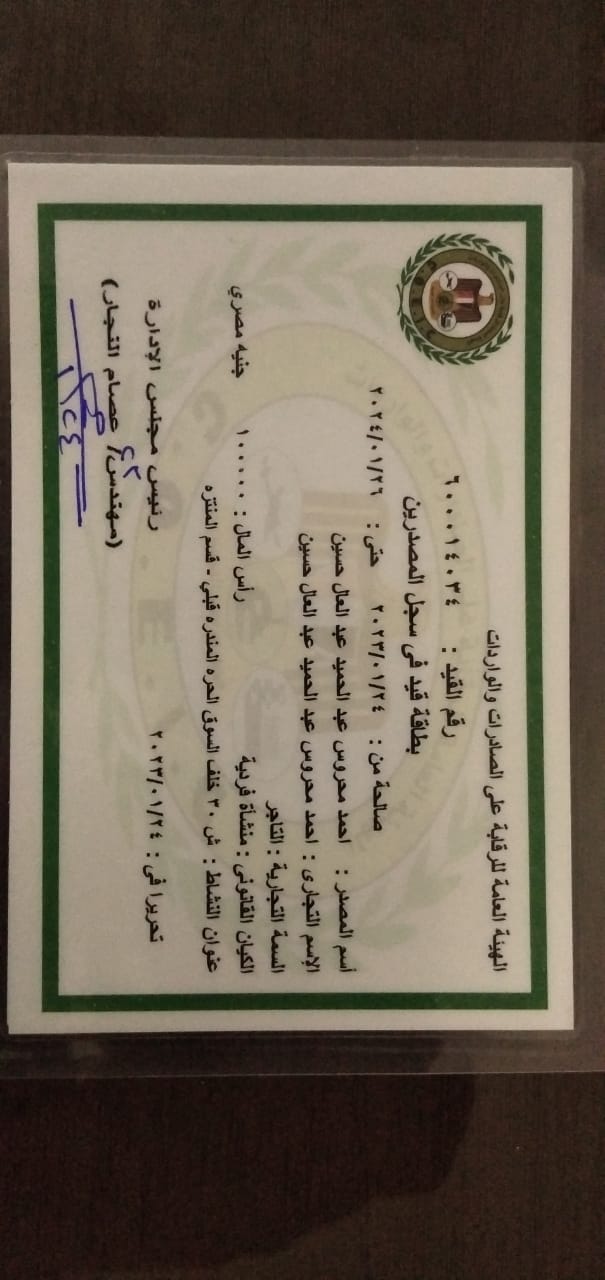 الهيئة العامة للرقابة على الصادرات والواردات
رقم القيد : ٦٠٠٠١٤٠٣٤
بطاقة قيد فى سجل المصدرين
صالحة من : ٢٠٢٣/٠١/٢٤ حتى : ٢٠٢٤/٠١/٢٦
أسم المصدر : احمد محروس عبد الحميد عبد العال حسين
الإسم التجارى : احمد محروس عبد الحميد عبد العال حسين
السمة التجارية : التاجر
الكيان القانونى : منشأة فردية رأس المال : ١٠٠٠٠٠ جنيه مصري
عنوان النشاط : ش ٣٠ خلف السوق الحره المندره قبلي - قسم المنتزه
تحريرا فى : ٢٠٢٣/٠١/٢٤
رئيس مجلس الإدارة
(مهندس/ عصام النجار)